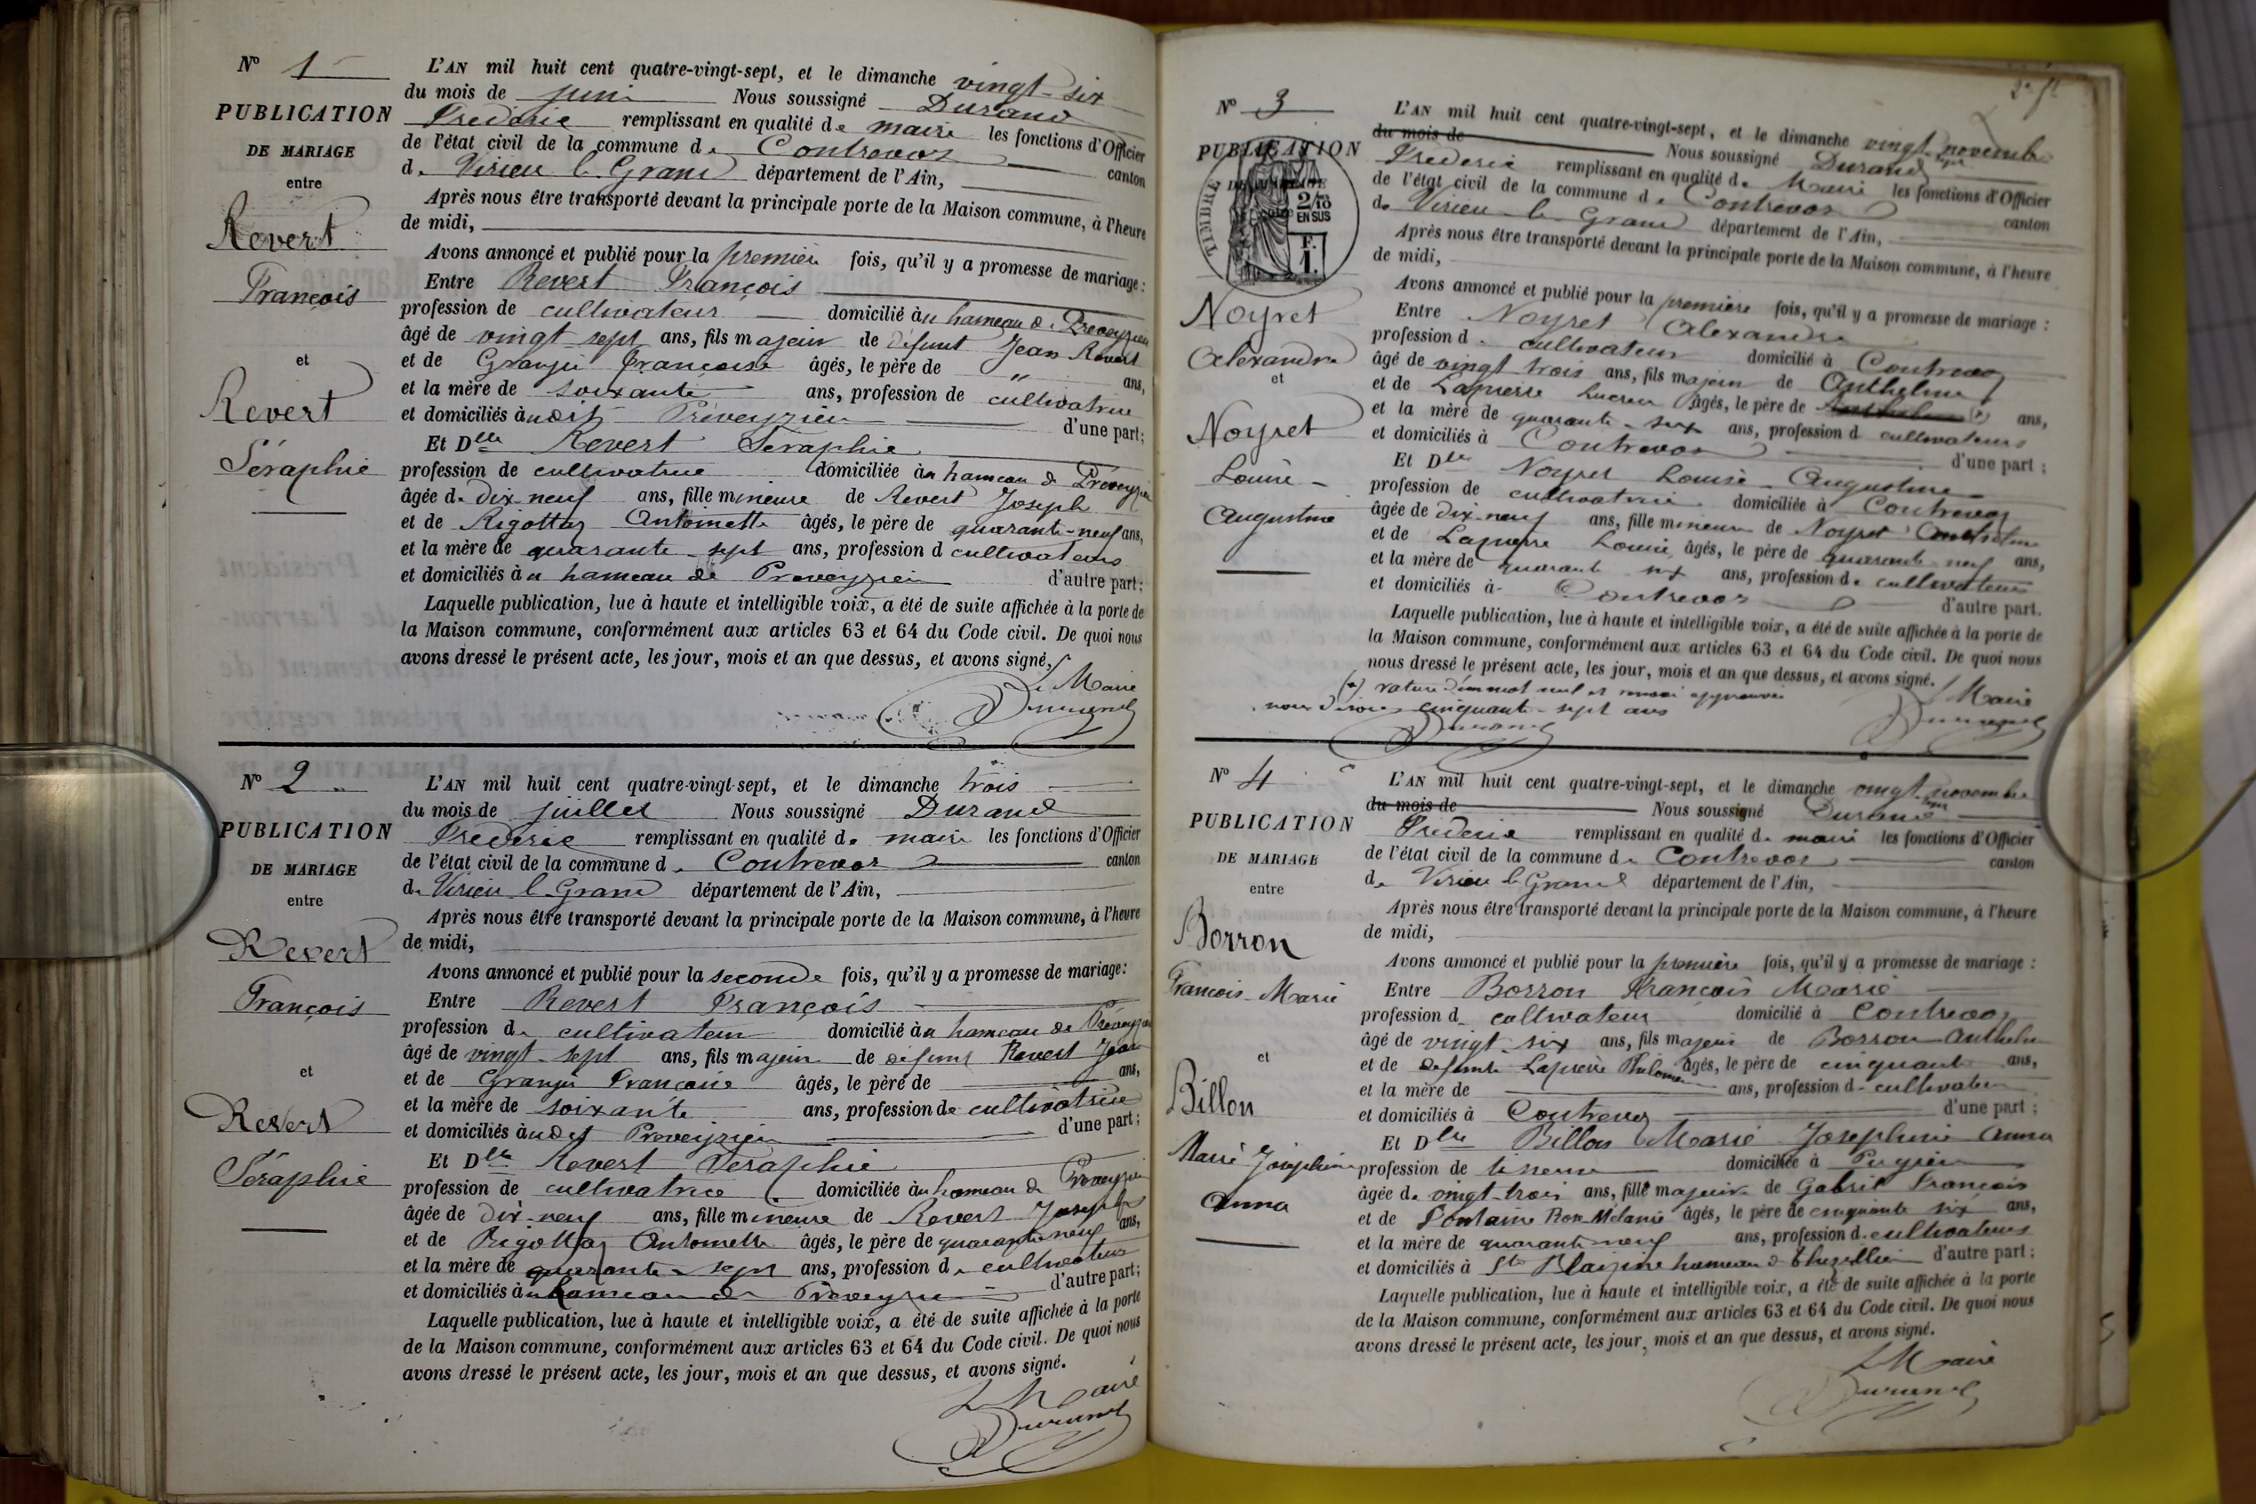 N° 1
PUBLICATION
DE MARIAGE
entre
Revert
François
et
Revert
Séraphie
L'AN mil huit cent quatre-vingt-sept, et le dimanche vingt-six
du mois de juin Nous soussigné Durand
Frédéric remplissant en qualité de maire les fonctions d'Officier
de l'état civil de la commune de Contrevoz canton
de Virieu le Grand département de l'Ain,
Après nous être transporté devant la principale porte de la Maison commune, à l'heure
de midi,
Avons annoncé et publié pour la première fois, qu'il y a promesse de mariage :
Entre Revert François
profession de cultivateur domicilié au hameau de Préveyzieu
âgé de vingt sept ans, fils majeur de défunt Jean Revert
et de Granju Françoise âgés, le père de " ans,
et la mère de soixante ans, profession de cultivatrice
et domiciliés àudit Préveyzieu d'une part;
Et Dlle Revert Séraphie
profession de cultivatrice domiciliée àu hameau de Préveyzieu
âgée de dix-neuf ans, fille mineure de Revert Joseph
et de Rigottaz Antoinette âgés, le père de quarante-neuf ans,
et la mère de quarante-sept ans, profession d cultivateurs
et domiciliés àu hameau de Préveyzieu d'autre part;
Laquelle publication, lue à haute et intelligible voix, a été de suite affichée à la porte de
la Maison commune, conformément aux articles 63 et 64 du Code civil. De quoi nous
avons dressé le présent acte, les jour, mois et an que dessus, et avons signé,
Le Maire
Durand
N° 2
PUBLICATION
DE MARIAGE
entre
Revert
François
et
Revert
Séraphie
L'AN mil huit cent quatre-vingt-sept, et le dimanche trois
du mois de juillet Nous soussigné Durand
Frédéric remplissant en qualité de maire les fonctions d'Officier
de l'état civil de la commune de Contrevoz canton
de Virieu le Grand département de l'Ain,
Après nous être transporté devant la principale porte de la Maison commune, à l'heure
de midi,
Avons annoncé et publié pour la seconde fois, qu'il y a promesse de mariage:
Entre Revert François
profession de cultivateur domicilié àu hameau de Préveyzieu
âgé de vingt-sept ans, fils majeur de défunt Revert Jean
et de Granju Françoise âgés, le père de ans,
et la mère de soixante ans, profession de cultivatrice
et domiciliés àudit Préveyzieu d'une part;
Et Dlle Revert Séraphie
profession de cultivatrice domiciliée àu hameau de Préveyzieu
âgée de dix-neuf ans, fille mineure de Revert Joseph
et de Rigottaz Antoinette âgés, le père de quarante neuf ans,
et la mère de quarante-sept ans, profession de cultivateurs
et domiciliés àu hameau de Préveyzieu d'autre part;
Laquelle publication, lue à haute et intelligible voix, a été de suite affichée à la porte
de la Maison commune, conformément aux articles 63 et 64 du Code civil. De quoi nous
avons dressé le présent acte, les jour, mois et an que dessus, et avons signé.
Le Maire
Durand
N° 3
PUBLICATION
TIMBRE
2/10
EN SUS
F.
1.
Noyret
Alexandre
et
Noyret
Louise
Augustine
L'AN mil huit cent quatre-vingt-sept, et le dimanche vingt novembre
du mois de Nous soussigné Durand
Frédéric remplissant en qualité de Maire les fonctions d'Officier
de l'état civil de la commune de Contrevoz canton
de Virieu-le-Grand département de l'Ain,
Après nous être transporté devant la principale porte de la Maison commune, à l'heure
de midi,
Avons annoncé et publié pour la première fois, qu'il y a promesse de mariage :
Entre Noyret Alexandre
profession de cultivateur domicilié à Contrevoz
âgé de vingt trois ans, fils majeur de Anthelme
et de Lapierre âgés, le père de (*) ans,
et la mère de quarante-six ans, profession d cultivateurs
et domiciliés à Contrevoz d'une part ;
Et Dlle Noyret Louise-Augustine
profession de cultivatrice domiciliée à Contrevoz
âgée de dix-neuf ans, fille mineure de Noyret
et de Lapierre Louise, âgés, le père de quarante neuf ans,
et la mère de quarante six ans, profession de cultivateurs
et domiciliés à Contrevoz d'autre part.
Laquelle publication, lue à haute et intelligible voix, a été de suite affichée à la porte de
la Maison commune, conformément aux articles 63 et 64 du Code civil. De quoi nous
nous dressé le présent acte, les jour, mois et an que dessus, et avons signé.
(*) rature d'un mot nul et renvoi approuvés
nous disons cinquante-sept ans
Durand
Le Maire
Durand
N° 4
PUBLICATION
DE MARIAGE
entre
Borron
François-Marie
et
Billon
Marie Joséphine
Anna
L'AN mil huit cent quatre-vingt-sept, et le dimanche vingt novembre
du mois de Nous soussigné Durand
Frédéric remplissant en qualité de maire les fonctions d'Officier
de l'état civil de la commune de Contrevoz canton
de Virieu le Grand département de l'Ain,
Après nous être transporté devant la principale porte de la Maison commune, à l'heure
de midi,
Avons annoncé et publié pour la première fois, qu'il y a promesse de mariage :
Entre Borron François Marie
profession de cultivateur domicilié à Contrevoz
âgé de vingt-six ans, fils majeur de Borron Anthelme
et de défunte Lapierre Philomène âgés, le père de cinquante ans,
et la mère de ans, profession de cultivateur
et domiciliés à Contrevoz d'une part ;
Et Dlle Billon Marie Joséphine Anna
profession de domiciliée à Pugieu
âgée de vingt-trois ans, fille majeure de Gabriel François
et de Fontaine Rose Mélanie âgés, le père de cinquante six ans,
et la mère de quarante neuf ans, profession de cultivateurs
et domiciliés à Ste Blaizine hameau de Thézillieu d'autre part ;
Laquelle publication, lue à haute et intelligible voix, a été de suite affichée à la porte
de la Maison commune, conformément aux articles 63 et 64 du Code civil. De quoi nous
avons dressé le présent acte, les jour, mois et an que dessus, et avons signé.
Le Maire
Durand